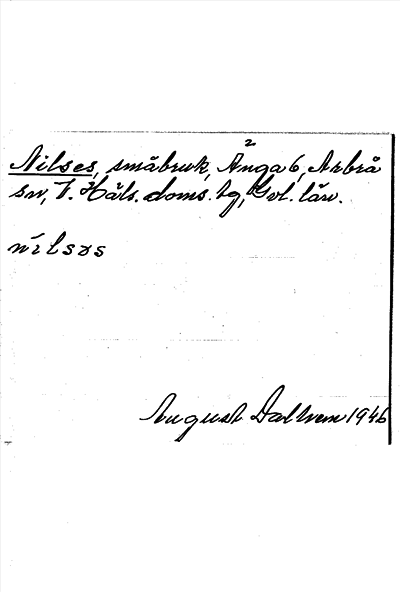 Nilses, småbruk, Änga 6, Arbrå
2
sn, V. Häls. doms. tg, Gvl. län.
nílsəs
August Dalhem 1946